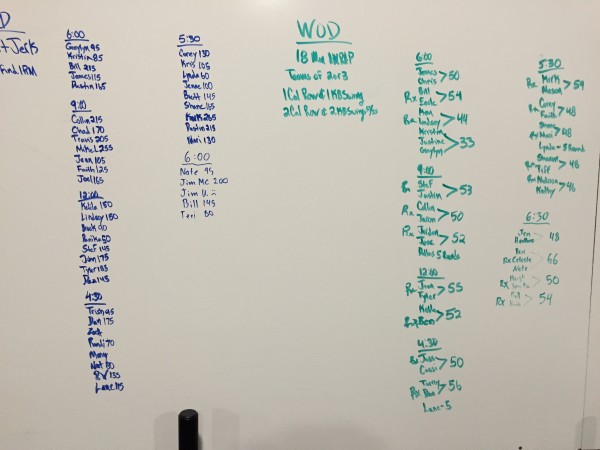 D
t Jerk
Find 1RM
6:00
Gwylyn 95
Kristin 85
Bill 215
James 115
Dustin 165
9:00
Collin 215
Chad 170
Travis 205
Mike L 255
Jenn 105
Faith 125
Joel 165
12:00
Kohle 150
Lindsey 150
Buck 90
50
Staf 145
John 175
Tyler 185
145
4:30
Trish 95
Dan 175
Zack
Randi 70
Mary
Nat 80
135
Lane 115
5:30
Corey 130
Kris 105
Lynda 60
Jenne 100
Brett 145
Shane 165
Mark 265
Dustin 215
Mari 130
6:00
Nate 95
Jim Mc 200
Jim U.
Bill 145
Teri 80
WOD
18 Min AMRAP
Teams of 2 or 3
1 Cal Row & 1 KB Swing
2 Cal Row & 2 KB Swing
6:00
James
Chris > 50
Bill
Rx Earle > 54
Ken
Rx Lindsey > 44
Kristin
Justine > 33
Gwylyn
9:00
Rx Staf
Justin > 53
Collin
Rx Jason > 50
Jaiden
Rx Jose > 52
5 Rounds
12:00
Rx John
Tyler > 55
Kohle
Rx Ben > 52
4:30
Rx Jess
> 50
Rx > 56
Lane - 5
5:30
Rx Mark
Mason > 59
Rx Corey
Faith > 48
Shane
Rx Mari > 48
Lynda - 5 Rounds
Shawn
Rx Tiff > 48
Rx Melissa
Kathy > 46
6:30
Jen
> 48
Rx Celeste > 66
Nate
Rx > 50
Rx > 54